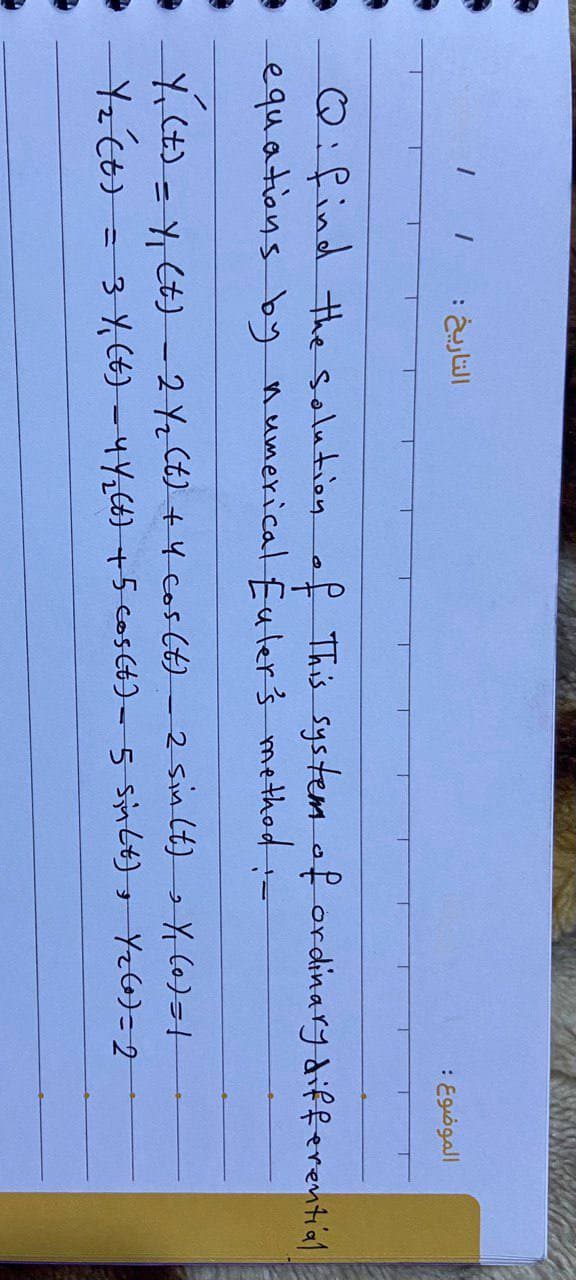 التاريخ : / /
الموضوع :
Q: find the solution of This system of ordinary differential
equations by numerical Euler's method :-
y₁'(t) = y₁(t) - 2 y₂(t) + 4 cos(t) - 2 sin(t) , y₁(0) = 1
y₂'(t) = 3 y₁(t) - 4 y₂(t) + 5 cos(t) - 5 sin(t) , y₂(0) = 2